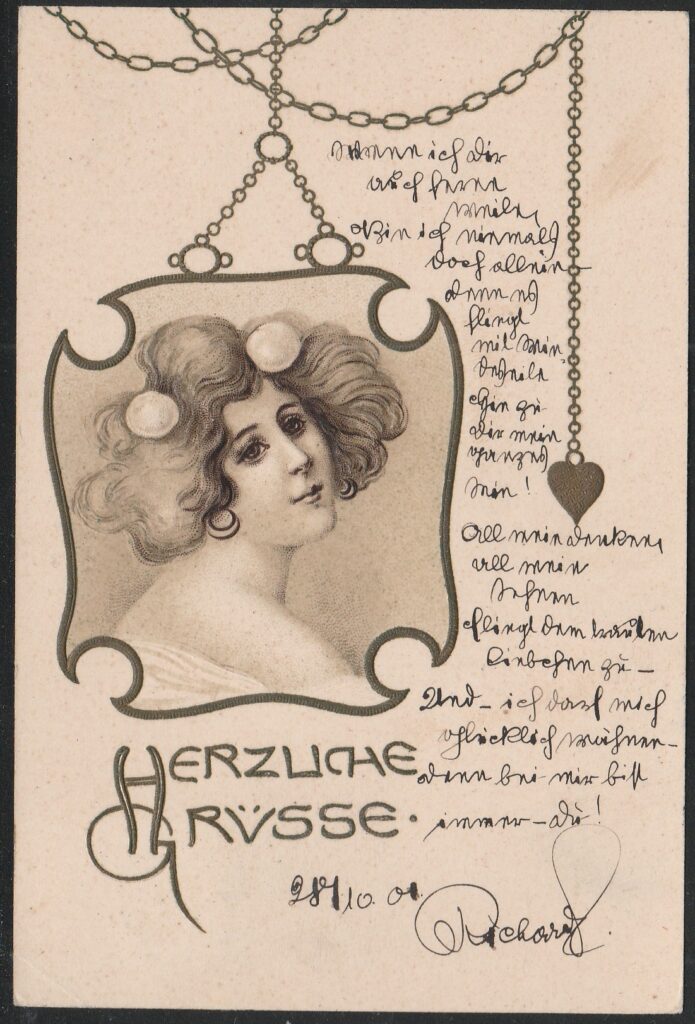 Wenn ich Dir
auch ferne
weile,
Bin ich niemals
doch allein –
denn es
fliegt
mit Windeseile
Hin zu
Dir mein
ganzes
Sein!
All mein denken,
all mein
Sehnen
fliegt dem trauten
Liebchen zu –
Und – ich darf mich
glücklich wähnen –
denn bei mir bist
immer – du!
HERZLICHE
GRÜSSE.
28/10. 01.
Richard.